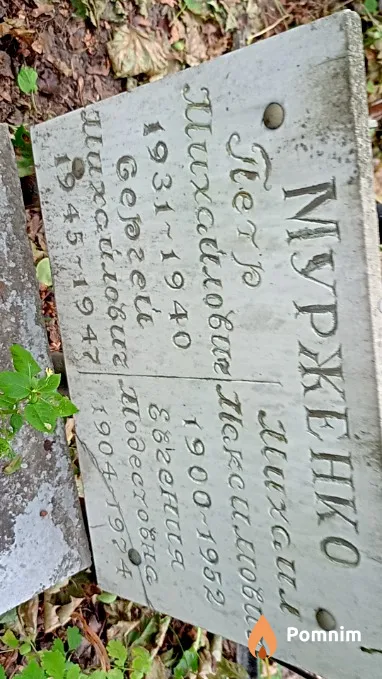 МУРЖЕНКО
Петр
Михайлович
1931-1940
Сергей
Михайлович
1945-1947
Михаил
Максимович
1900-1952
Евгения
Модестовна
1904-1974
Pomnim